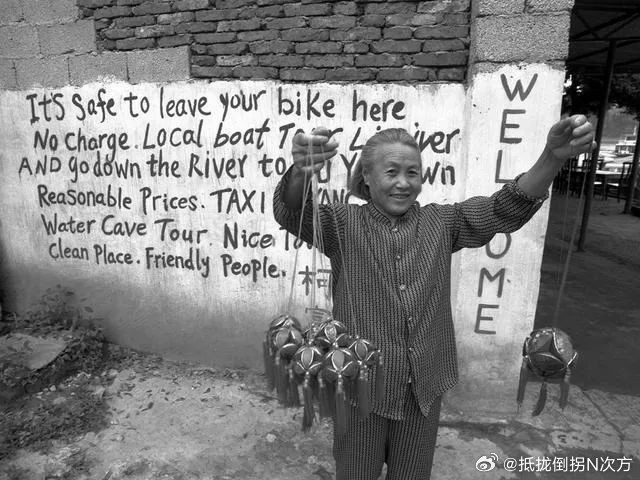 It's Safe to leave your bike here
No Charge. Local boat Li River
AND go down the River to
Reasonable Prices. TAXI
Water Cave Tour. Nice
Clean Place. Friendly People.
WELOME
柯
@抵拢倒拐N次方